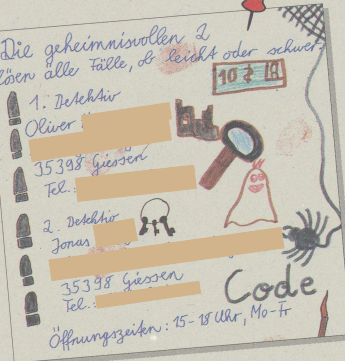 Die geheimnisvollen 2
lösen alle Fälle, ob leicht oder schwer
10 $
1. Detektiv
Oliver
35398 Giessen
Tel.:
2. Detektiv
Jonas
35398 Giessen
Tel.:
Code
Öffnungszeiten: 15-18 Uhr, Mo-Fr